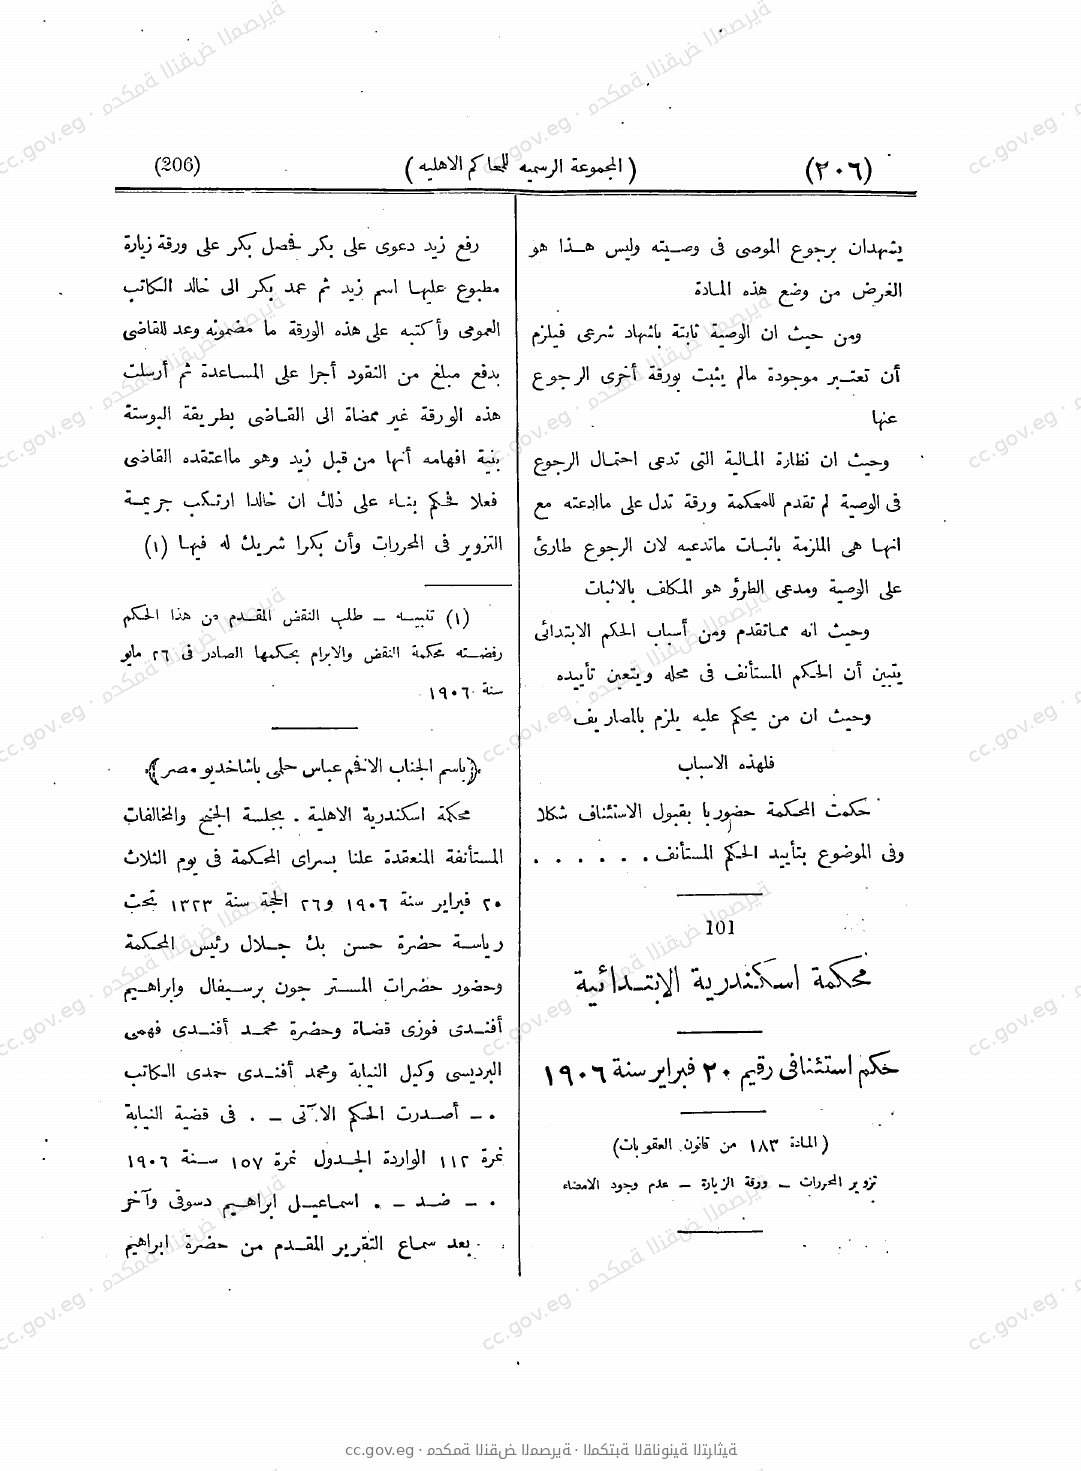 (٢٠٦)
( المجموعة الرسميه للمحاكم الاهليه )
(206)
يشهدان برجوع الموصى فى وصيته وليس هذا هو
الغرض من وضع هذه المادة
ومن حيث ان الوصية ثابتة باشهاد شرعى فيلزم
أن تعتبر موجودة مالم يثبت بورقة أخرى الرجوع
عنها
وحيث ان نظارة المالية التى تدعى احتمال الرجوع
فى الوصية لم تقدم للمحكمة ورقة تدل على ماادعته مع
انها هى الملزمة باثبات ماتدعيه لان الرجوع طارئ
على الوصية ومدعى الطرؤ هو المكلف بالاثبات
وحيث انه مماتقدم ومن أسباب الحكم الابتدائى
يتبين أن الحكم المستأنف فى محله ويتعين تأييده
وحيث ان من يحكم عليه يلزم بالمصاريف
فلهذه الاسباب
حكمت المحكمة حضوريا بقبول الاستئناف شكلا
وفى الموضوع بتأييد الحكم المستأنف . . . . . .
101
محكمة اسكندرية الابتدائية
حكم استئنافى رقيم ٢٠ فبراير سنة ١٩٠٦
( المادة ١٨٣ من قانون العقوبات )
تزوير المحررات – ورقة الزيارة – عدم وجود الامضاء
رفع زيد دعوى على بكر فحصل بكر على ورقة زيارة
مطبوع عليها اسم زيد ثم عمد بكر الى خالد الكاتب
العمومى وأكتبه على هذه الورقة ما مضمونه وعد للقاضى
بدفع مبلغ من النقود أجرا على المساعدة ثم أرسلت
هذه الورقة غير ممضاة الى القاضى بطريقة البوستة
بنية افهامه أنها من قبل زيد وهو مااعتقده القاضى
فعلا فحكم بناء على ذلك ان خالدا ارتكب جريمة
التزوير فى المحررات وأن بكرا شريك له فيها (١)
(١) تنبيه – طلب النقض المقدم من هذا الحكم
رفضته محكمة النقض والابرام بحكمها الصادر فى ٢٦ مايو
سنة ١٩٠٦
﴿باسم الجناب الافخم عباس حلمى باشا خديو مصر﴾
محكمة اسكندرية الاهلية . بجلسة الجنح والمخالفات
المستأنفة المنعقدة علنا بسراى المحكمة فى يوم الثلاث
٢٠ فبراير سنة ١٩٠٦ و٢٦ الحجة سنة ١٣٢٣ تحت
رياسة حضرة حسن بك جلال رئيس المحكمة
وحضور حضرات المستر جون برسيفال وابراهيم
أفندى فوزى قضاة وحضرة محمد أفندى فهمى
البرديسى وكيل النيابة ومحمد أفندى حمدى الكاتب
. – أصدرت الحكم الآتى – . فى قضية النيابة
نمرة ١١٢ الواردة الجدول نمرة ١٥٧ سنة ١٩٠٦
. – ضد – . اسماعيل ابراهيم دسوقى وآخر
بعد سماع التقرير المقدم من حضرة ابراهيم
cc.gov.eg · محكمة النقض المصرية · المكتبة القانونية التراثية